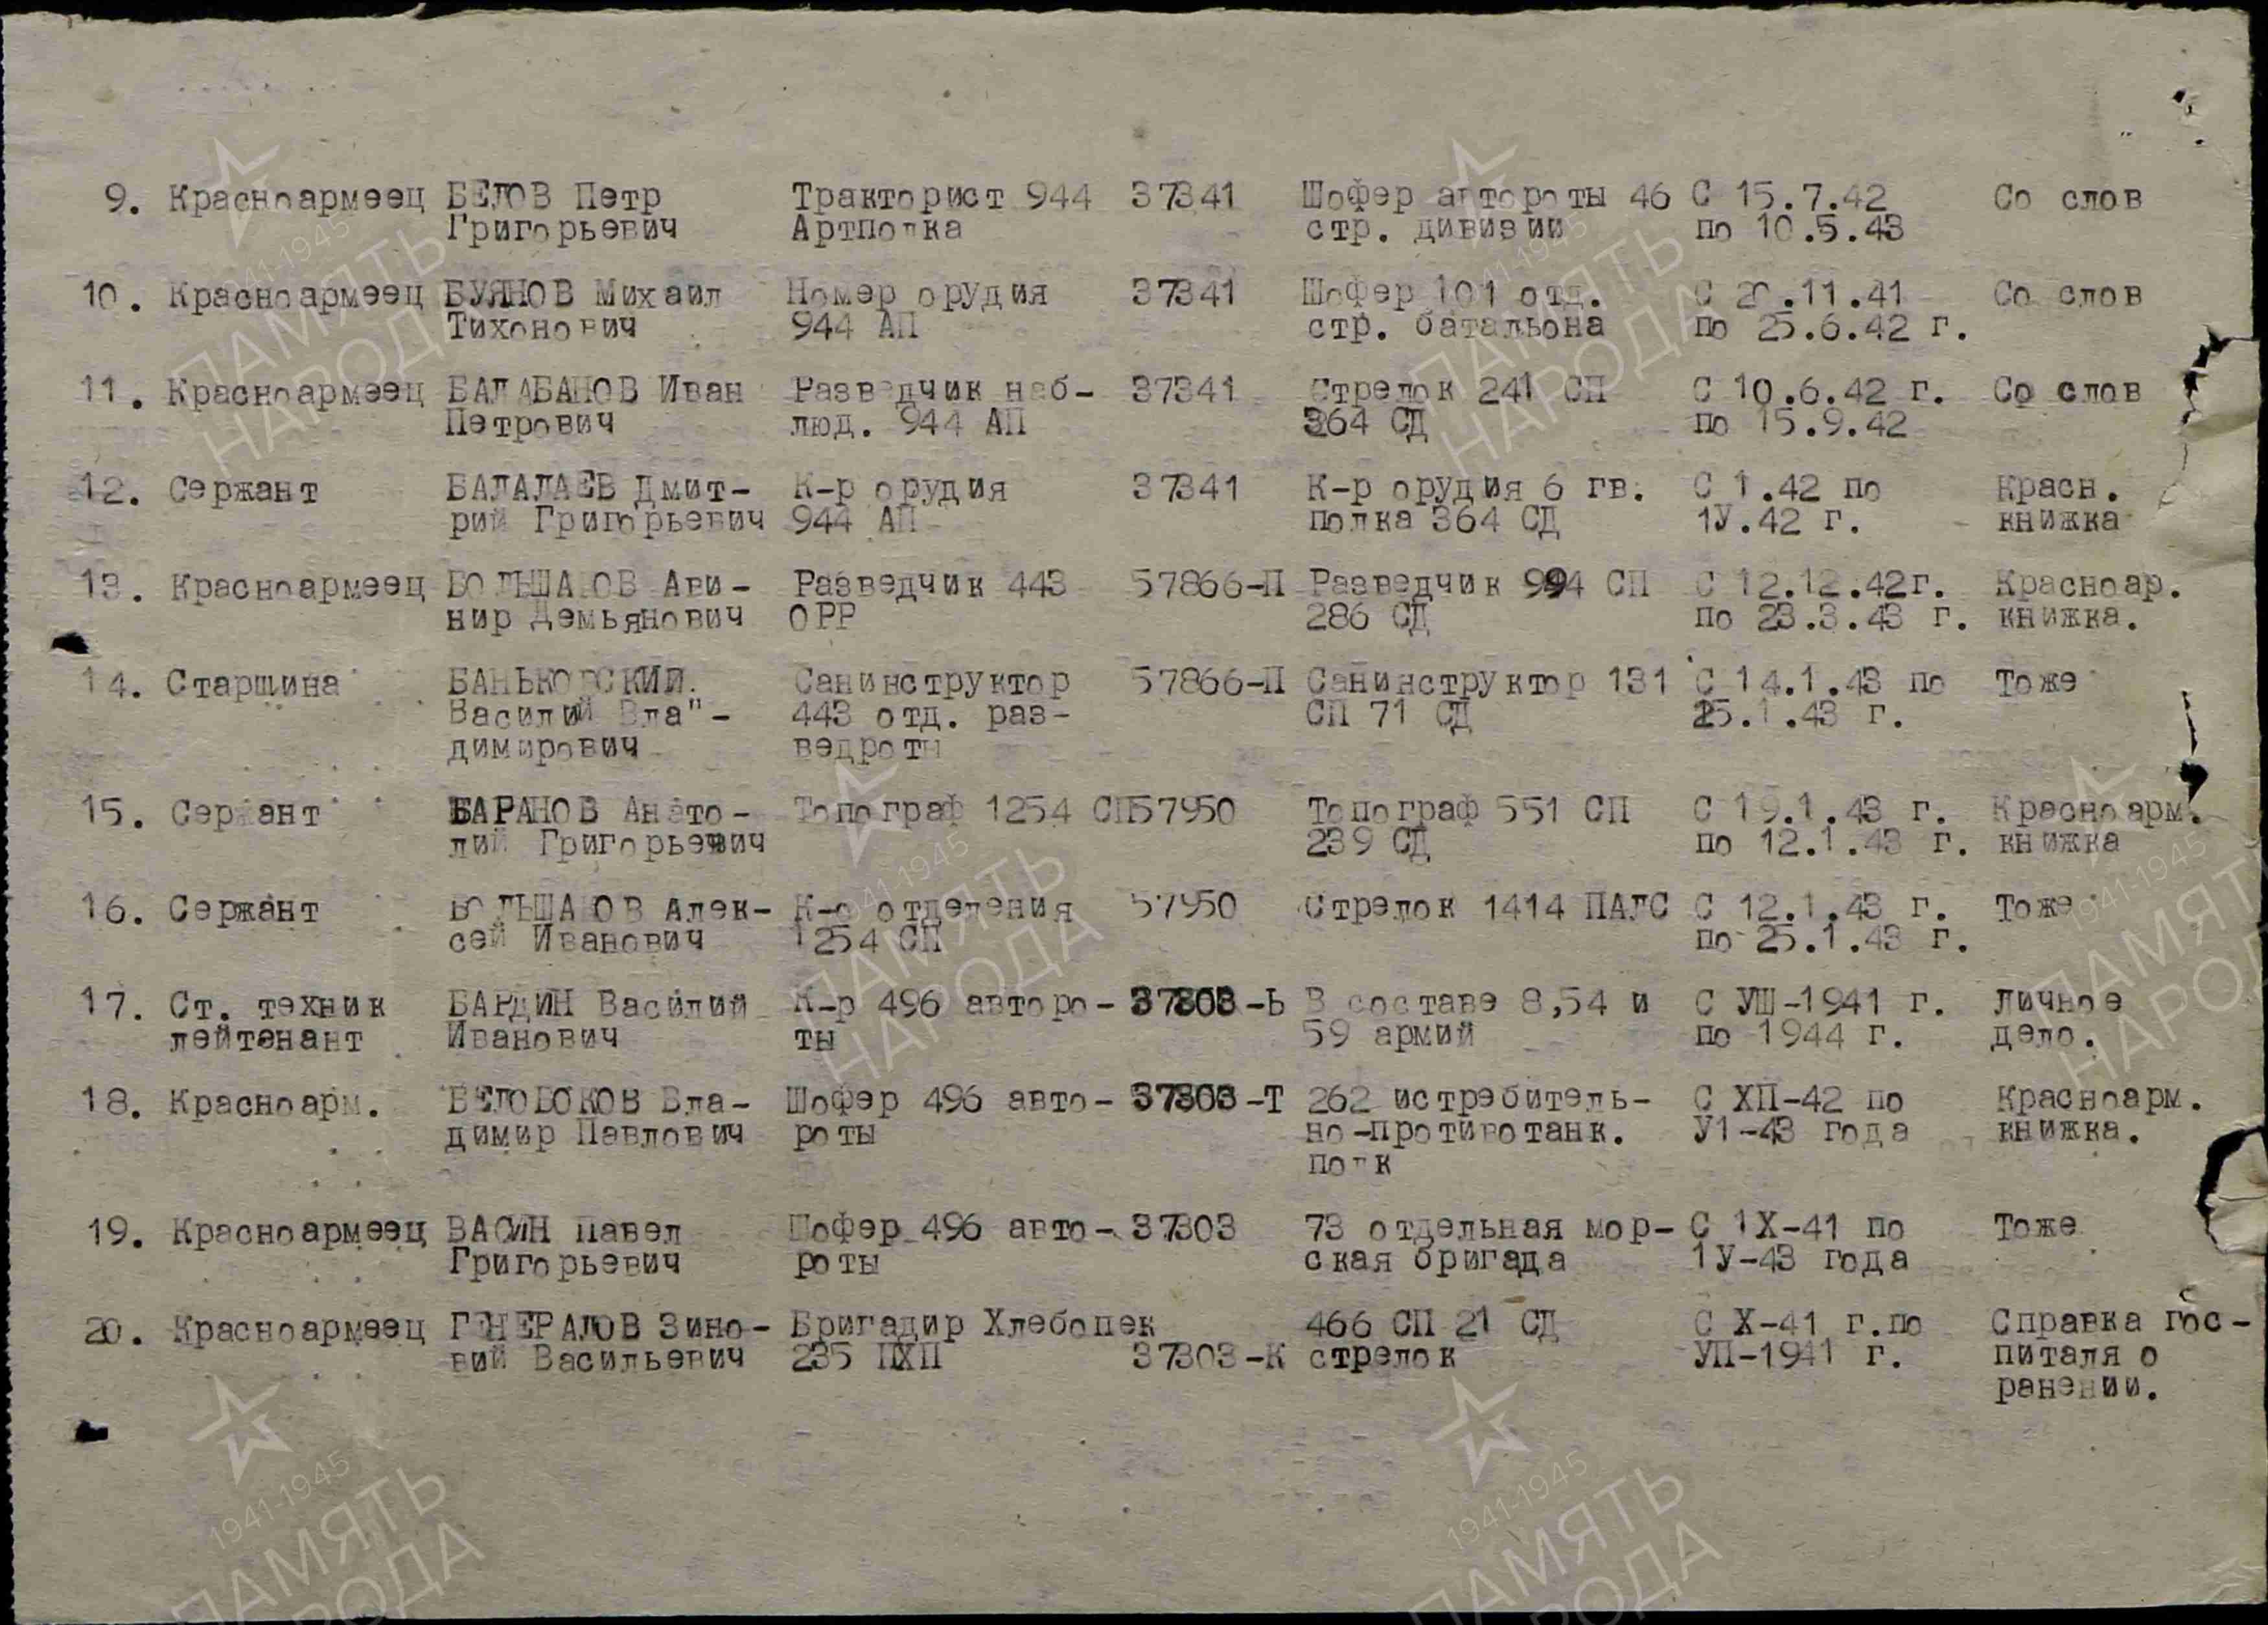 9. Красноармеец БЕЛОВ Петр Тракторист 944 37341 Шофер автороты 46 С 15.7.42 Со слов
Григорьевич Артполка стр. дивизии по 10.5.43
10. Красноармеец БУЯНОВ Михаил Номер орудия 37341 Шофер 101 отд. С 20.11.41 Со слов
Тихонович 944 АП стр. батальона по 25.6.42 г.
11. Красноармеец БАЛАБАНОВ Иван Разведчик наб- 37341 Стрелок 241 СП С 10.6.42 г. Со слов
Петрович люд. 944 АП 364 СД по 15.9.42
12. Сержант БАЛАЛАЕВ Дмит- К-р орудия 37341 К-р орудия 6 гв. С 1.42 по Красн.
рий Григорьевич 944 АП полка 364 СД 1У.42 г. книжка
13. Красноармеец БОЛЬШАКОВ Ави- Разведчик 443 57866-П Разведчик 994 СП С 12.12.42г. Красноар.
нир Демьянович ОРР 286 СД по 23.3.43 г. книжка.
14. Старшина БАНЬКОВСКИЙ Санинструктор 57866-П Санинструктор 131 С 14.1.43 по Тоже
Василий Вла"- 443 отд. раз- СП 71 СД 25.1.43 г.
димирович ведроты
15. Сержант БАРАНОВ Анато- Топограф 1254 СП 57950 Топограф 551 СП С 19.1.43 г. Красноарм.
лий Григорьевич 239 СД по 12.1.43 г. книжка
16. Сержант БОЛЬШАКОВ Алек- К-р отделения 57950 Стрелок 1414 ПАЛС С 12.1.43 г. Тоже
сей Иванович 1254 СП по 25.1.43 г.
17. Ст. техник БАРДИН Василий К-р 496 авторо- 37303-Ь В составе 8,54 и С УШ-1941 г. Личное
лейтенант Иванович ты 59 армий по 1944 г. дело.
18. Красноарм. БЕЛОБОКОВ Вла- Шофер 496 авто- 37303-Т 262 истребитель- С ХП-42 по Красноарм.
димир Павлович роты но-противотанк. У1-43 года книжка.
полк
19. Красноармеец ВАСИН Павел Шофер 496 авто- 37303 73 отдельная мор- С 1Х-41 по Тоже
Григорьевич роты ская бригада 1У-43 года
20. Красноармеец ГЕНЕРАЛОВ Зино- Бригадир Хлебопек 466 СП 21 СД С Х-41 г.по Справка гос-
вий Васильевич 235 ПХП 37303-К стрелок УП-1941 г. питаля о
ранении.
1941-1945
ПАМЯТЬ
НАРОДА
1941-1945
ПАМЯТЬ
НАРОДА
1941-1945
ПАМЯТЬ
НАРОДА
1941-1945
ПАМЯТЬ
НАРОДА
1941-1945
ПАМЯТЬ
НАРОДА
1941-1945
ПАМЯТЬ
НАРОДА